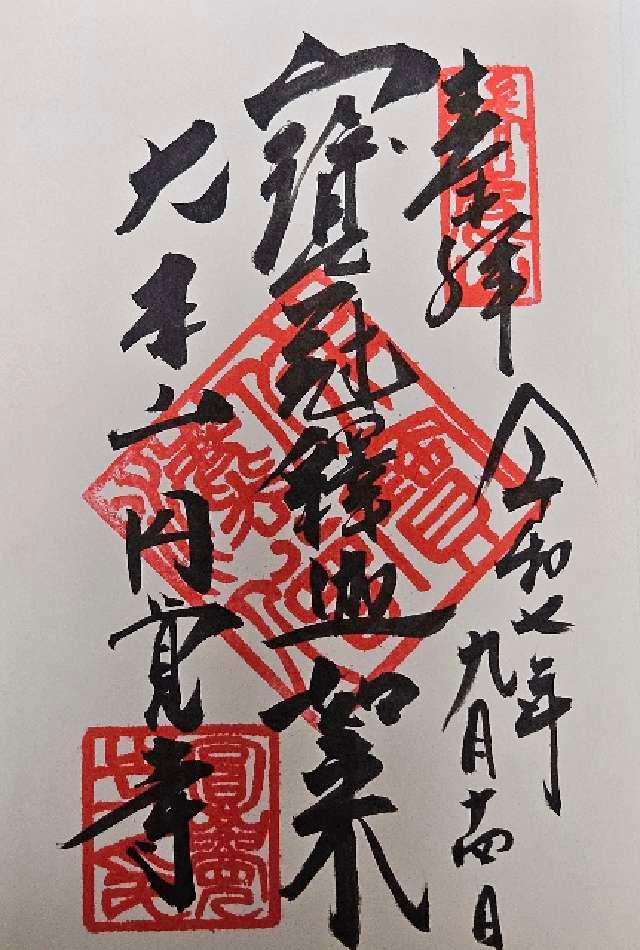 奉拝
令和七年九月十四日
寶冠釋迦如来
大本山円覚寺